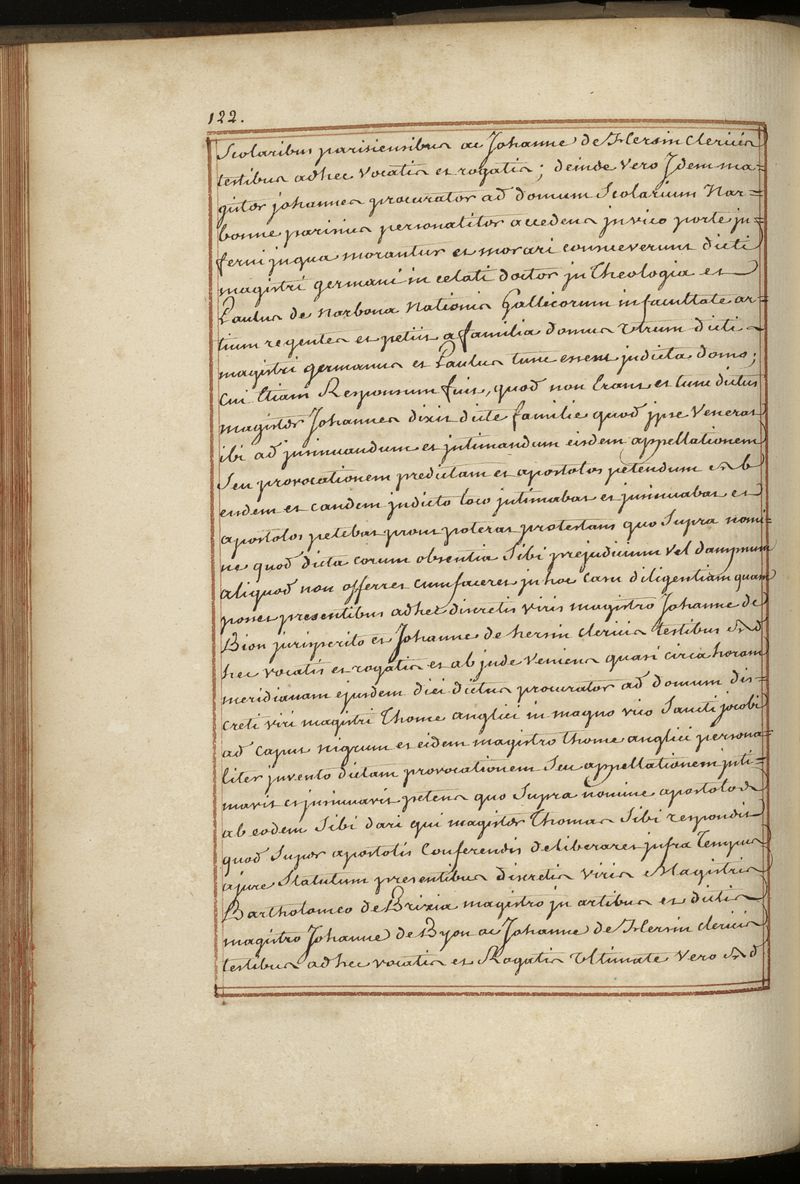 122.
Scolaribus parisiensibus ac Johanne de Hersin Clericis
testibus adhec Vocatis et rogatis; deinde Vero Jdem ma=
gister johannes procurator ad domum Scolarium Nar=
bonne parisius personaliter accedens in vico porte in=
ferni in qua morantur et morari consueverunt dicti
magistri germani in celati doctor in Theologia et
Paulus de Narbona Nationis Gallicorum in facultate ar=
tium regentes et petiit a familia domus Utrum dicti
magistri germanus et Paulus tunc essent in dicta domo;
Cui Etiam Responsum fuit, quod non Erant et tunc dictus
magister Johannes dixit dicte familie quod ipse Venerat
ibi ad insinuandum et intimandum eisdem appellationem
Seu provocationem predictam et apostolos petendum ab
eisdem et eandem in dicto loco intimabat et insinuabat et
apostolos petebat prout poterat protestans quo Supra nomi=
ne quod dicta eorum absentia Sibi prejudicium Vel dampnum
aliquod non afferret cum faceret in hoc casu diligentiam quam
posset presentibus adhec discretis viris magistro Johanne de
Bion jurisperito et Johanne de hersin clericis testibus ad
hec vocatis et rogatis et ab inde Veniens quasi circa horam
meridianam ejusdem diei dictus procurator ad domum dis=
creti viri magistri Thome anglici in magno vico Sancti jacobi
ad caput nigrum et eidem magistro thome anglici persona
liter invento dictam provocationem Seu appellationem inti=
mavit et insinuavit petens quo Supra nomine apostolos
ab eodem Sibi dari qui magister Thomas Sibi respondit
quod Super apostolis Conferendis deliberaret infra Tempus
a jure Statutum presentibus discretis Viris Magistris
Bartholomeo de Brixia magistro in artibus et dictis
magistro Johanne de Byon ac Johanne de Hersin clericis
testibus adhec vocatis et Rogatis Ultimate Vero ad